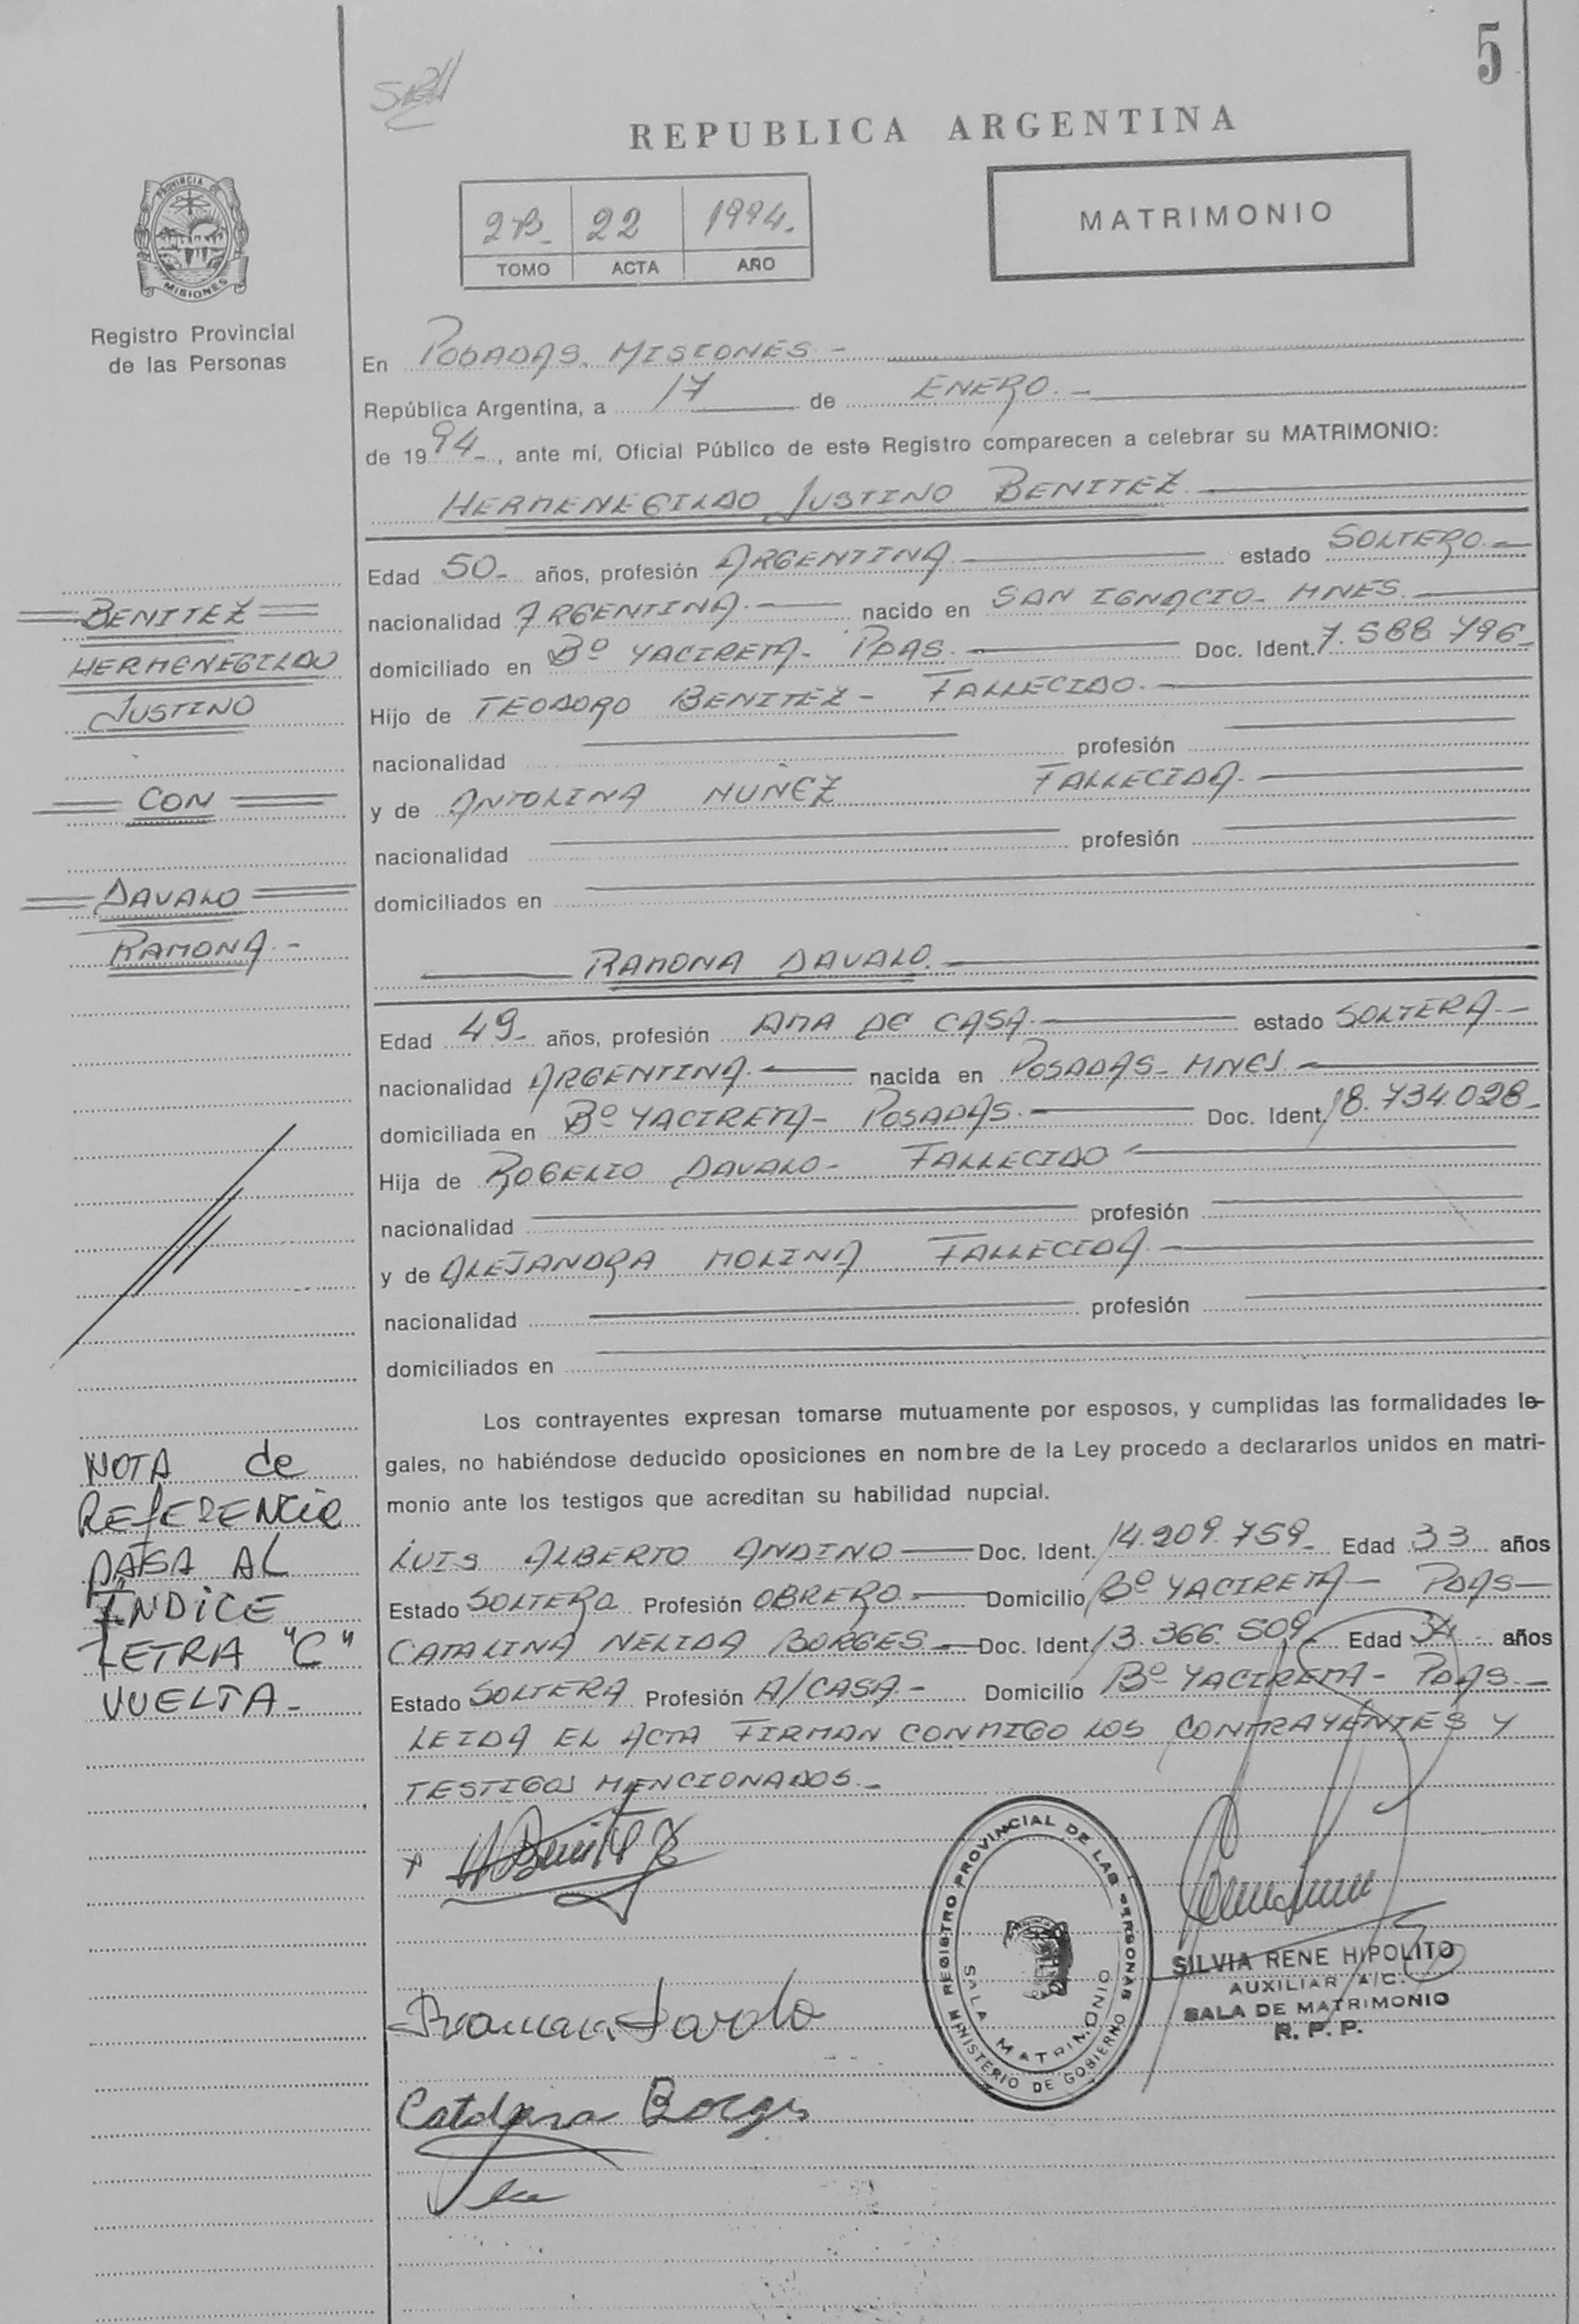 5
REPUBLICA ARGENTINA
PROVINCIA DE
MISIONES
Registro Provincial
de las Personas
2B- 22 1994.-
TOMO ACTA AÑO
MATRIMONIO
En POSADAS. MISIONES -
República Argentina, a 17 de ENERO.-
de 1994-, ante mí, Oficial Público de este Registro comparecen a celebrar su MATRIMONIO:
HERMENEGILDO JUSTINO BENITEZ
Edad 50- años, profesión ARGENTINA estado SOLTERO.-
nacionalidad ARGENTINA.- nacido en SAN IGNACIO- MNES.
domiciliado en Bº YACIRETA- PDAS. Doc. Ident. 7.588.796-
Hijo de TEODORO BENITEZ- FALLECIDO.-
nacionalidad profesión
y de ANTOLINA NUÑEZ FALLECIDA.-
nacionalidad profesión
domiciliados en
RAMONA DAVALO.
Edad 49- años, profesión AMA DE CASA.- estado SOLTERA.-
nacionalidad ARGENTINA.- nacida en POSADAS- MNES.-
domiciliada en Bº YACIRETA- POSADAS.- Doc. Ident. 18.734.028-
Hija de ROGELIO DAVALO- FALLECIDO-
nacionalidad profesión
y de ALEJANDRA MOLINA FALLECIDA.-
nacionalidad profesión
domiciliados en
Los contrayentes expresan tomarse mutuamente por esposos, y cumplidas las formalidades le-
gales, no habiéndose deducido oposiciones en nombre de la Ley procedo a declararlos unidos en matri-
monio ante los testigos que acreditan su habilidad nupcial.
LUIS ALBERTO ANDINO Doc. Ident. 14.209.759- Edad 33 años
Estado SOLTERO Profesión OBRERO.- Domicilio Bº YACIRETA- PDAS-
CATALINA NELIDA BORGES.- Doc. Ident. 13.366.509- Edad 34- años
Estado SOLTERA Profesión A/CASA.- Domicilio Bº YACIRETA- PDAS.-
LEIDA EL ACTA FIRMAN CONMIGO LOS CONTRAYENTES Y
TESTIGOS MENCIONADOS.-
BENITEZ
HERMENEGILDO
JUSTINO
CON
DAVALO
RAMONA.-
NOTA de
REFERENCIA
PASA AL
ÍNDICE
LETRA "C"
VUELTA-
H Benitez
Ramona Davalo
Catalina Borges
REGISTRO PROVINCIAL DE LAS PERSONAS
SALA MATRIMONIO
MINISTERIO DE GOBIERNO
SILVIA RENE HIPOLITO
AUXILIAR A/C.
SALA DE MATRIMONIO
R. P. P.